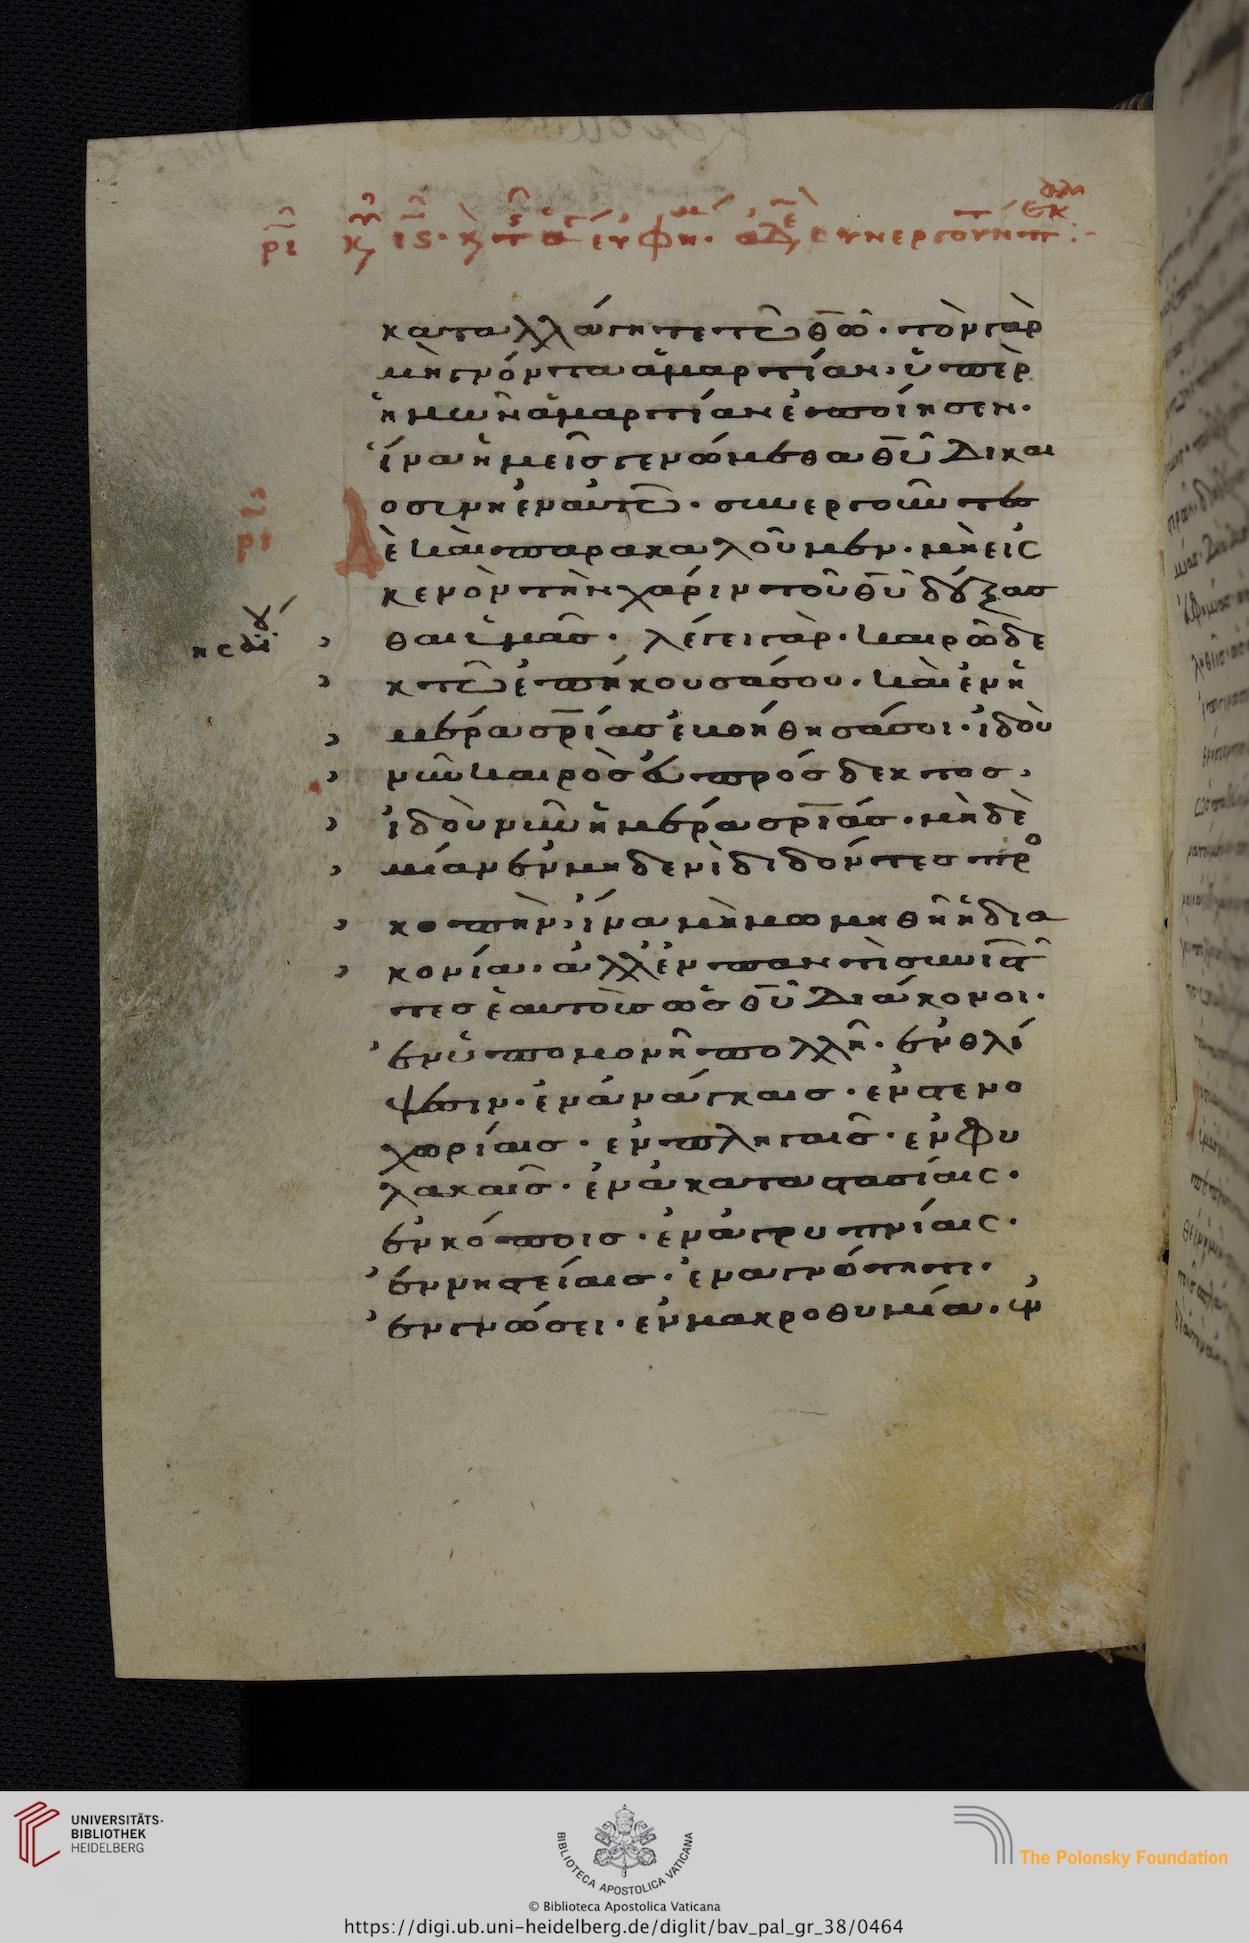 καταλλάγητε τῶ θ̅ω̅· τὸν γὰρ
μὴ γνόντα ἁμαρτίαν, ὑπὲρ
ἡμῶν ἁμαρτίαν ἐποίησεν·
ἵνα ἡμεῖς γενώμεθα θ̅υ̅ δικαι
οσύνη ἐν αὐτῶ· συνεργοῦντες
Δὲ καὶ παρακαλοῦμεν· μὴ εἰς
κενὸν τὴν χάριν τοῦ θ̅υ̅ δέξασ
θαι ὑμᾶς· λέγει γάρ· καιρῶ δε
κτῶ ἐπήκουσά σου· καὶ ἐν ἡ
μέρα σ̅ρ̅ίας ἐβοήθησά σοι· ἰδοὺ
νῦν καιρὸς εὐπρόσδεκτος,
ἰδοὺ νῦν ἡμέρα σ̅ρ̅ίας· μὴ δὲ
μίαν ἐν μηδενὶ διδόντες προ
κοπὴν, ἵνα μὴ μωμηθῆ ἡ δια
κονία· ἀλλ' ἐν παντὶ συνιστῶ
τες ἑαυτοὺς ὡς θ̅υ̅ διάκονοι·
ἐν ὑπομονῆ πολλῆ· ἐν θλί
ψεσιν· ἐν ἀνάγκαις· ἐν στενο
χωρίαις· ἐν πληγαῖς· ἐν φυ
λακαῖς· ἐν ἀκαταστασίαις·
ἐν κόποις· ἐν ἀγρυπνίαις·
ἐν νηστείαις· ἐν ἁγνότητι·
ἐν γνώσει· ἐν μακροθυμία· ἐν
UNIVERSITÄTS-
BIBLIOTHEK
HEIDELBERG
BIBLIOTECA APOSTOLICA VATICANA
The Polonsky Foundation
© Biblioteca Apostolica Vaticana
https://digi.ub.uni-heidelberg.de/diglit/bav_pal_gr_38/0464